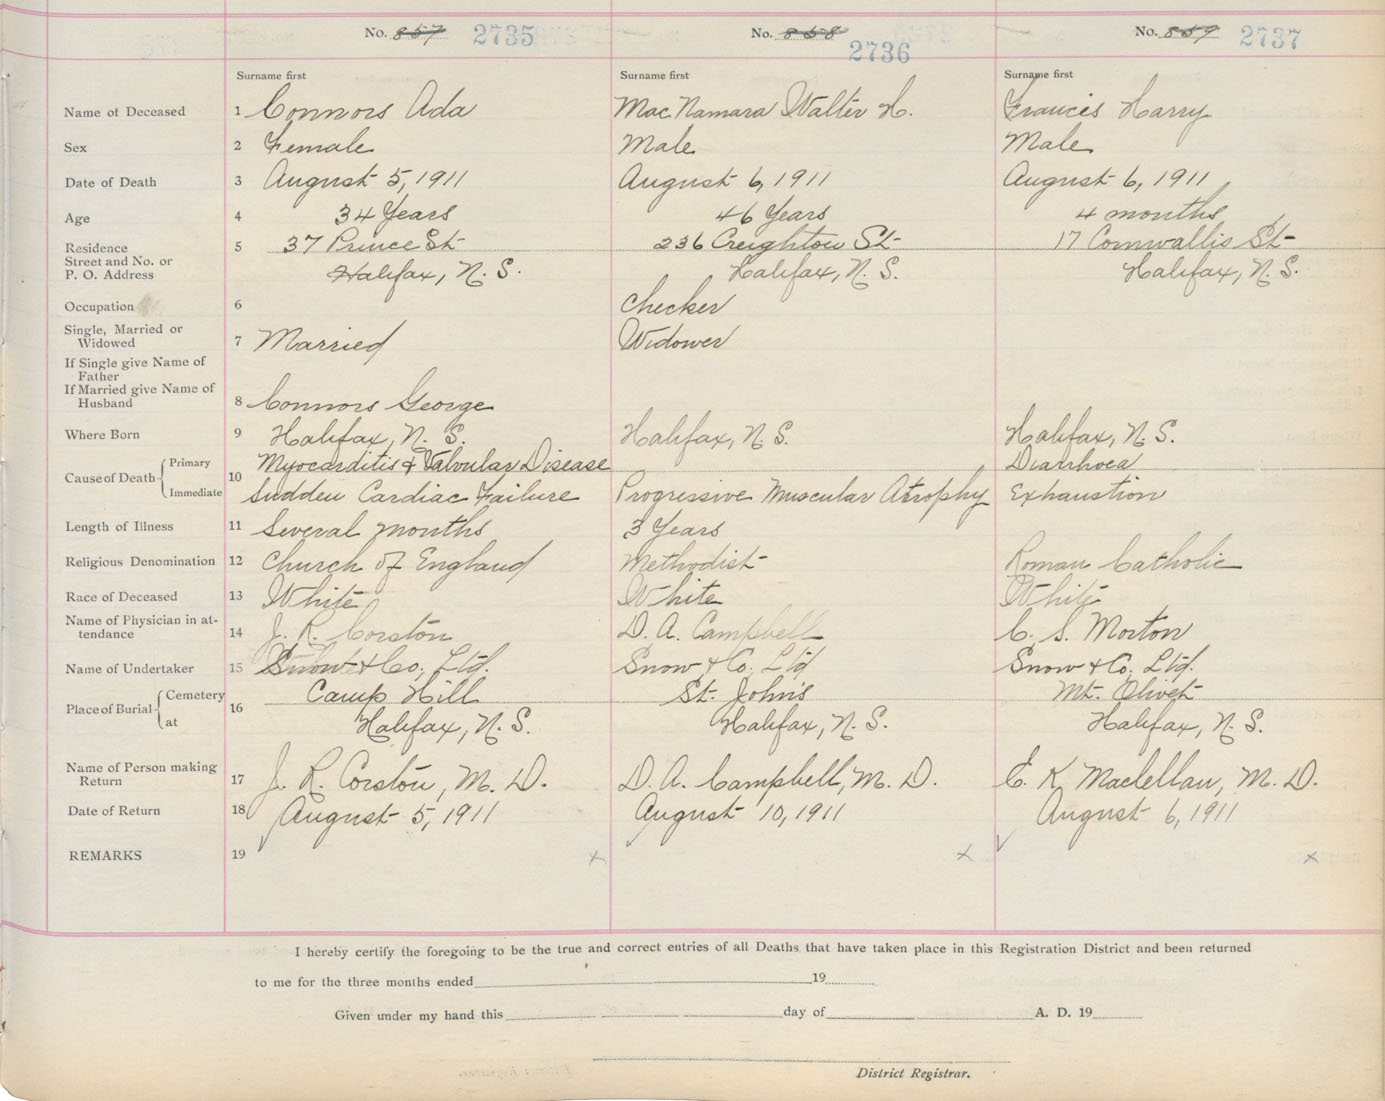 No. 857 2735 No. 858 2736 No. 859 2737
Surname first Surname first Surname first
Name of Deceased 1 Connors Ada Mac Namara Walter H. Francis Harry
Sex 2 Female Male Male
Date of Death 3 August 5, 1911 August 6, 1911 August 6, 1911
Age 4 34 Years 46 Years 4 months
Residence 5 37 Prince St 236 Creighton St 17 Cornwallis St
Street and No. or
P. O. Address Halifax, N. S. Halifax, N. S. Halifax, N. S.
Occupation 6 Checker
Single, Married or
Widowed 7 Married Widower
If Single give Name of
Father
If Married give Name of
Husband 8 Connors George
Where Born 9 Halifax, N. S. Halifax, N. S. Halifax, N. S.
Cause of Death Primary 10 Myocarditis & Valvular Disease Diarrhoea
Immediate Sudden Cardiac Failure Progressive Muscular Atrophy Exhaustion
Length of Illness 11 Several months 3 Years
Religious Denomination 12 Church of England Methodist Roman Catholic
Race of Deceased 13 White White White
Name of Physician in at-
tendance 14 J. R. Corston D. A. Campbell C. S. Morton
Name of Undertaker 15 Snow & Co, Ltd. Snow & Co. Ltd Snow & Co, Ltd.
Place of Burial Cemetery 16 Camp Hill St. John's Mt. Olivet
at Halifax, N. S. Halifax, N. S. Halifax, N. S.
Name of Person making
Return 17 J. R. Corston, M. D. D. A. Campbell, M. D. E. K. Maclellan, M. D.
Date of Return 18 August 5, 1911 August 10, 1911 August 6, 1911
REMARKS 19 x x x
I hereby certify the foregoing to be the true and correct entries of all Deaths that have taken place in this Registration District and been returned
to me for the three months ended 19
Given under my hand this day of A. D. 19
District Registrar.